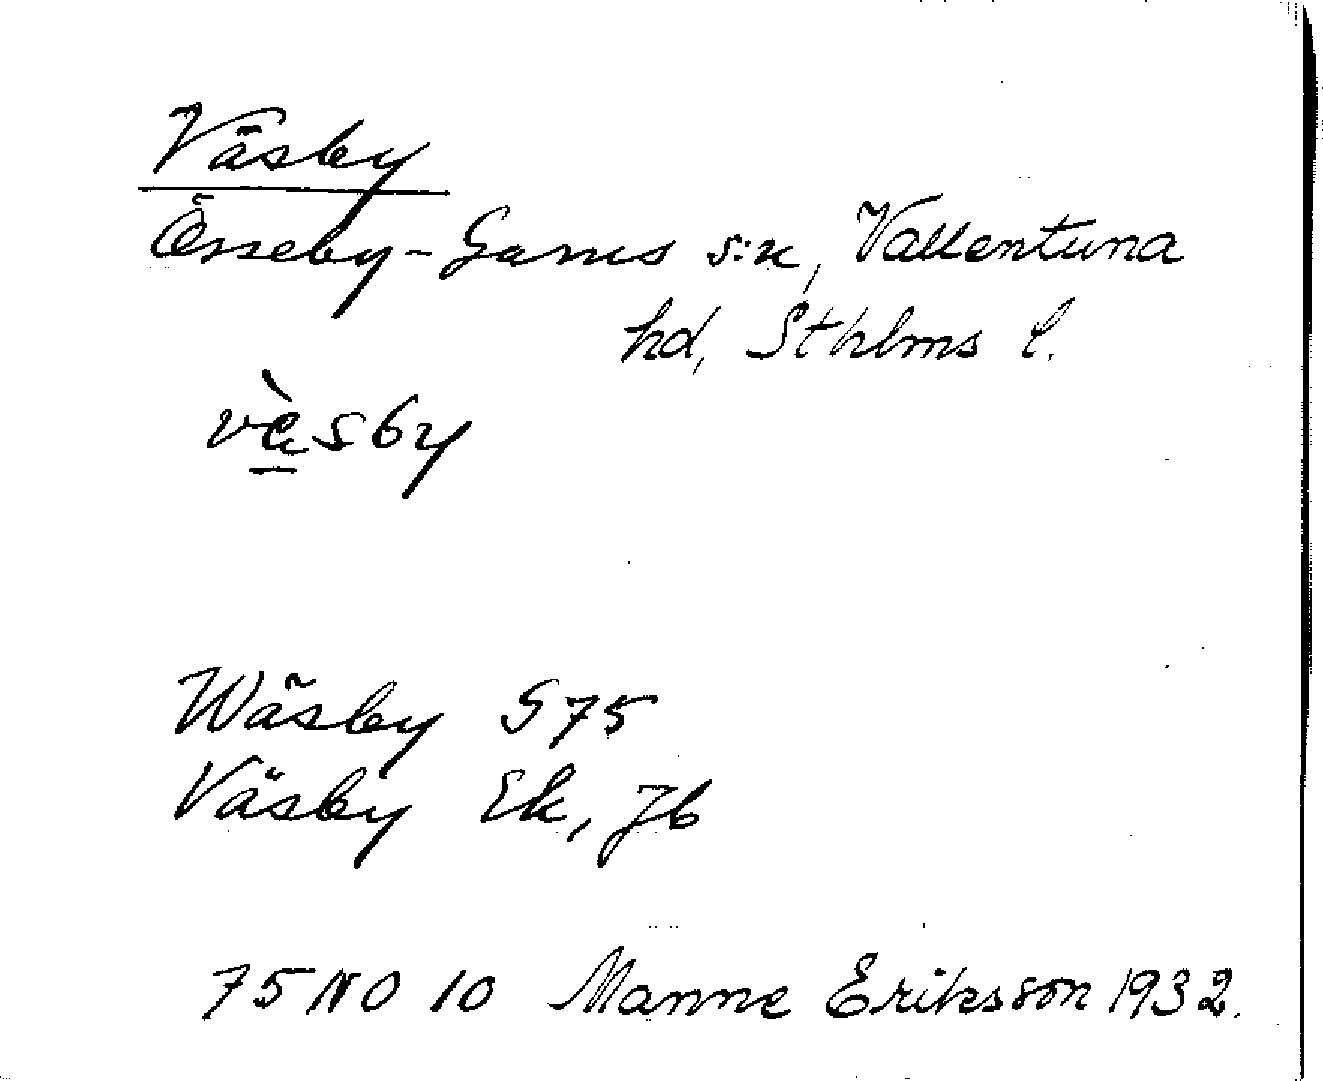 Väsby
Össeby-Garns s:n, Vallentuna
hd, Sthlms l.
vę̀sby
Wäsby G75
Väsby Ek, Jb
75 NO 10 Manne Eriksson 1932.